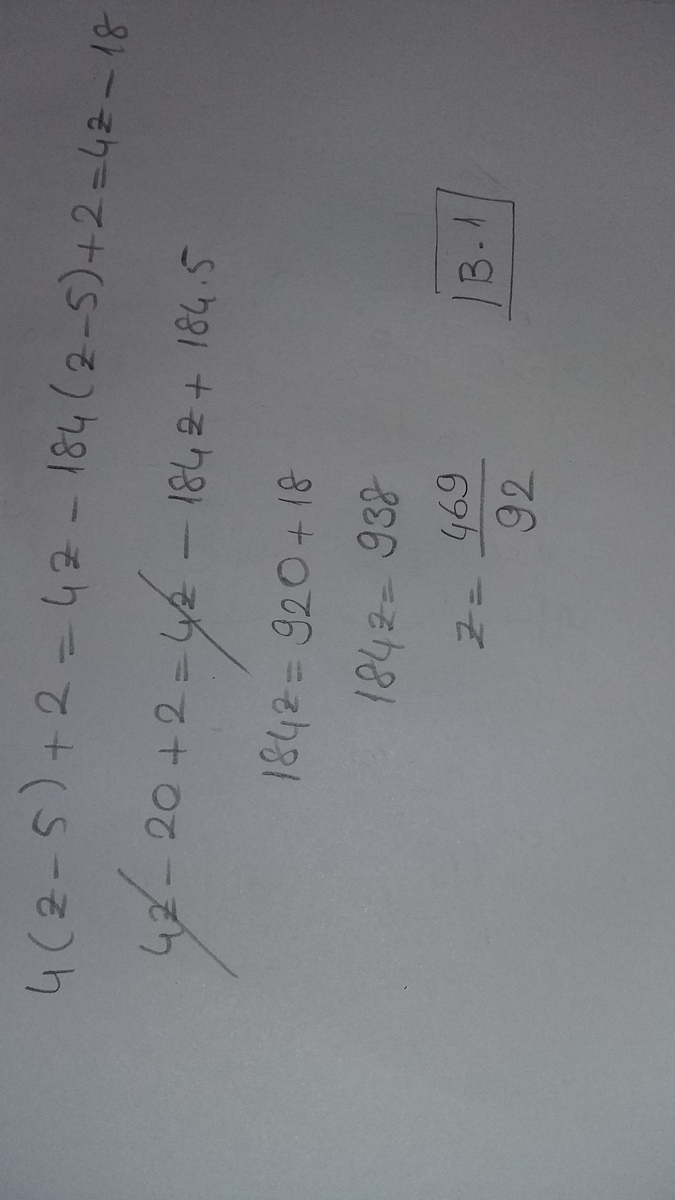 4(z-5)+2=4z-184(z-5)+2=4z-18
4z-20+2=4z-184z+184.5
184z=920+18
184z=938
z=469/92
B.1